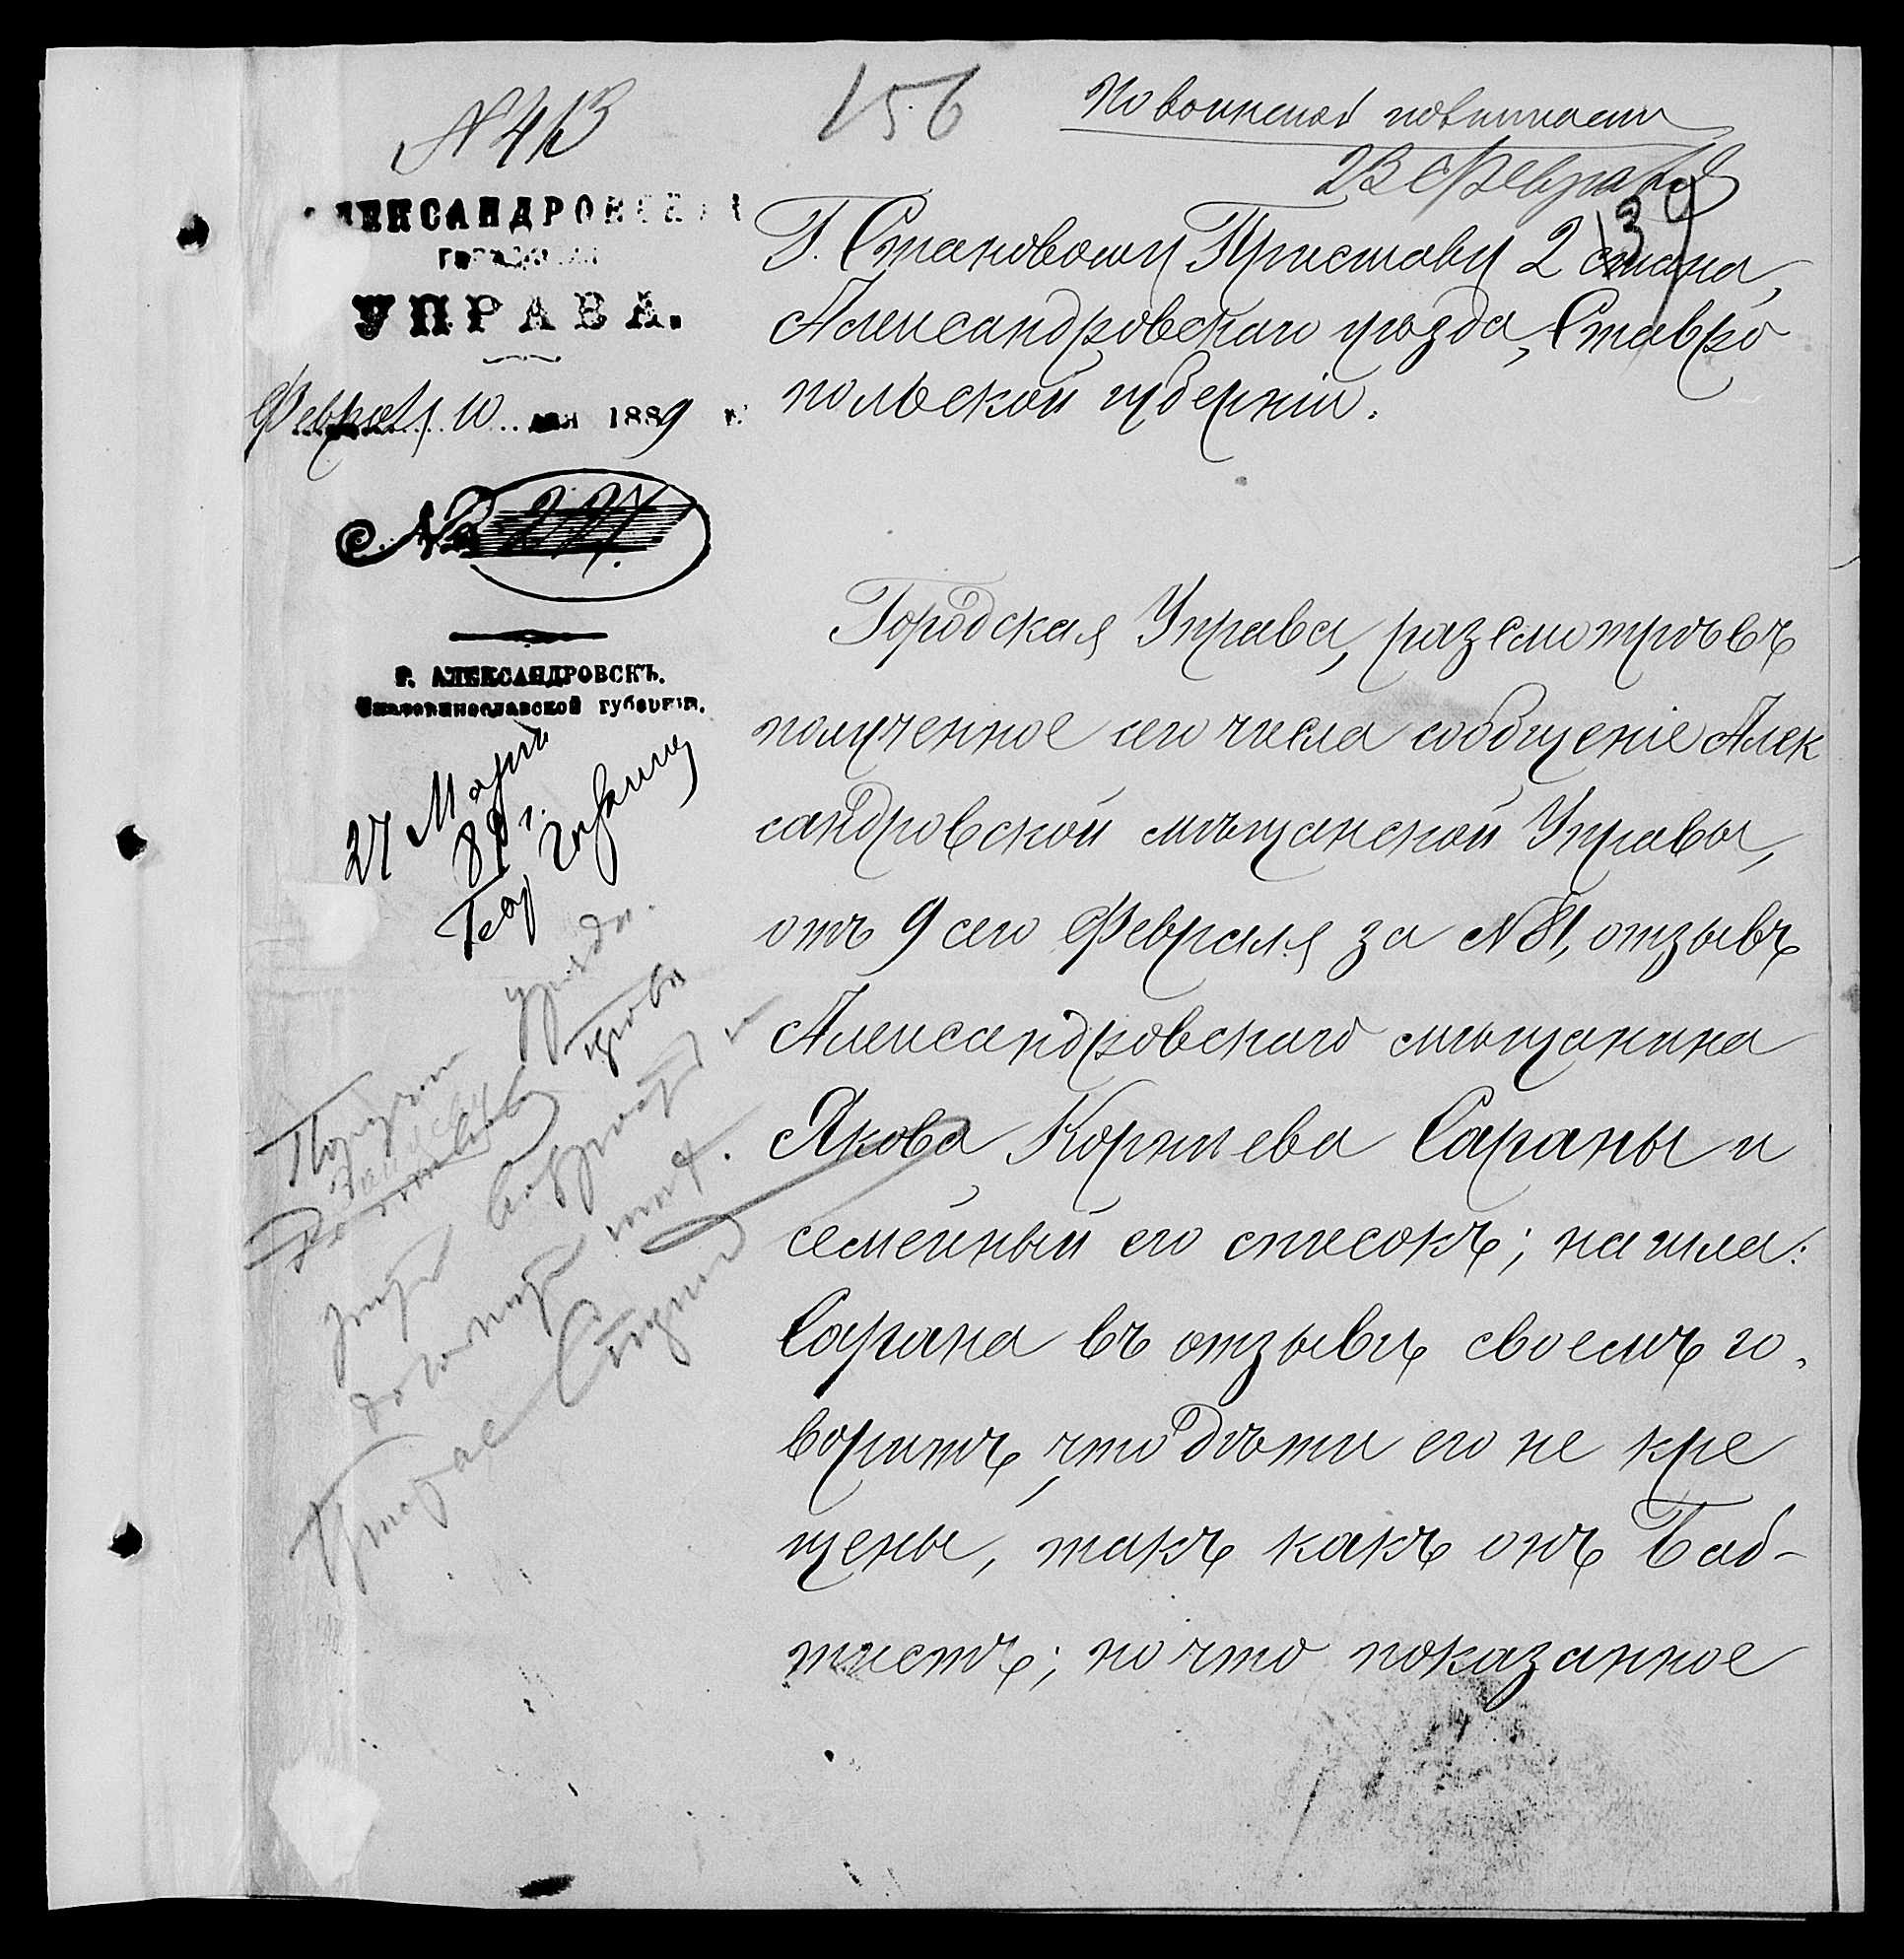 № 413
156
По воинской повинности
23 Февраля
АЛЕКСАНДРОВСКАЯ
ГОРОДСКАЯ
УПРАВА.
Февраля 10 дня 1889 г.
№ 227.
Г. АЛЕКСАНДРОВСКЪ.
Екатеринославской губерніи.
27 Марта
89 г.
34
Г. Становому Приставу 2 стана,
Александровскаго уѣзда, Ставро
польской губерніи.
Городская Управа, разсмотрѣвъ
полученное сего числа сообщеніе Алек
сандровской мѣщанской Управы,
отъ 9 сего Февраля за № 81, отзывъ
Александровскаго мѣщанина
Якова Корнѣева Сараны и
семейный его списокъ; нашла:
Сарана въ отзывѣ своемъ го-
воритъ, что дѣти его не кре
щены, такъ какъ онъ Баб-
тистъ; но что показанное